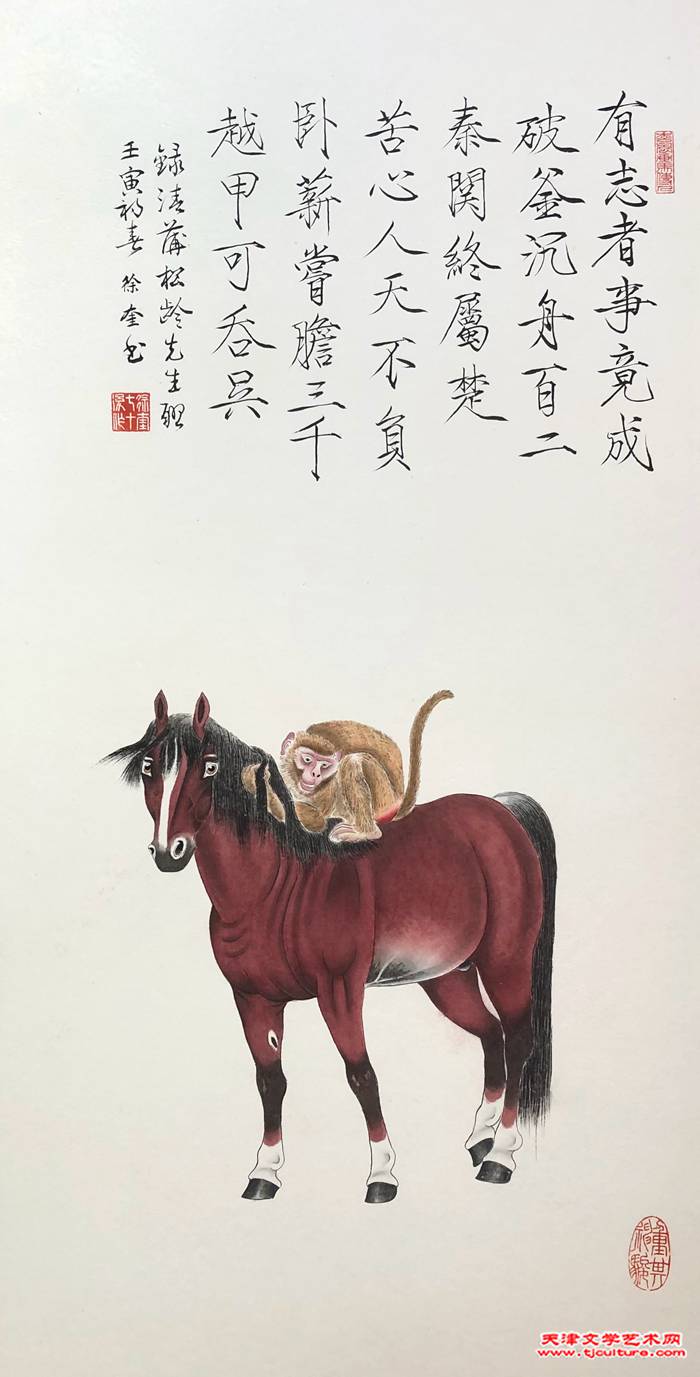 有志者事竟成
破釜沉舟百二
秦関終屬楚
苦心人天不負
卧薪嘗膽三千
越甲可吞吳
録清蒲松龄先生聯
壬寅初春 徐奎书
天津文学艺术网
www.tjculture.com